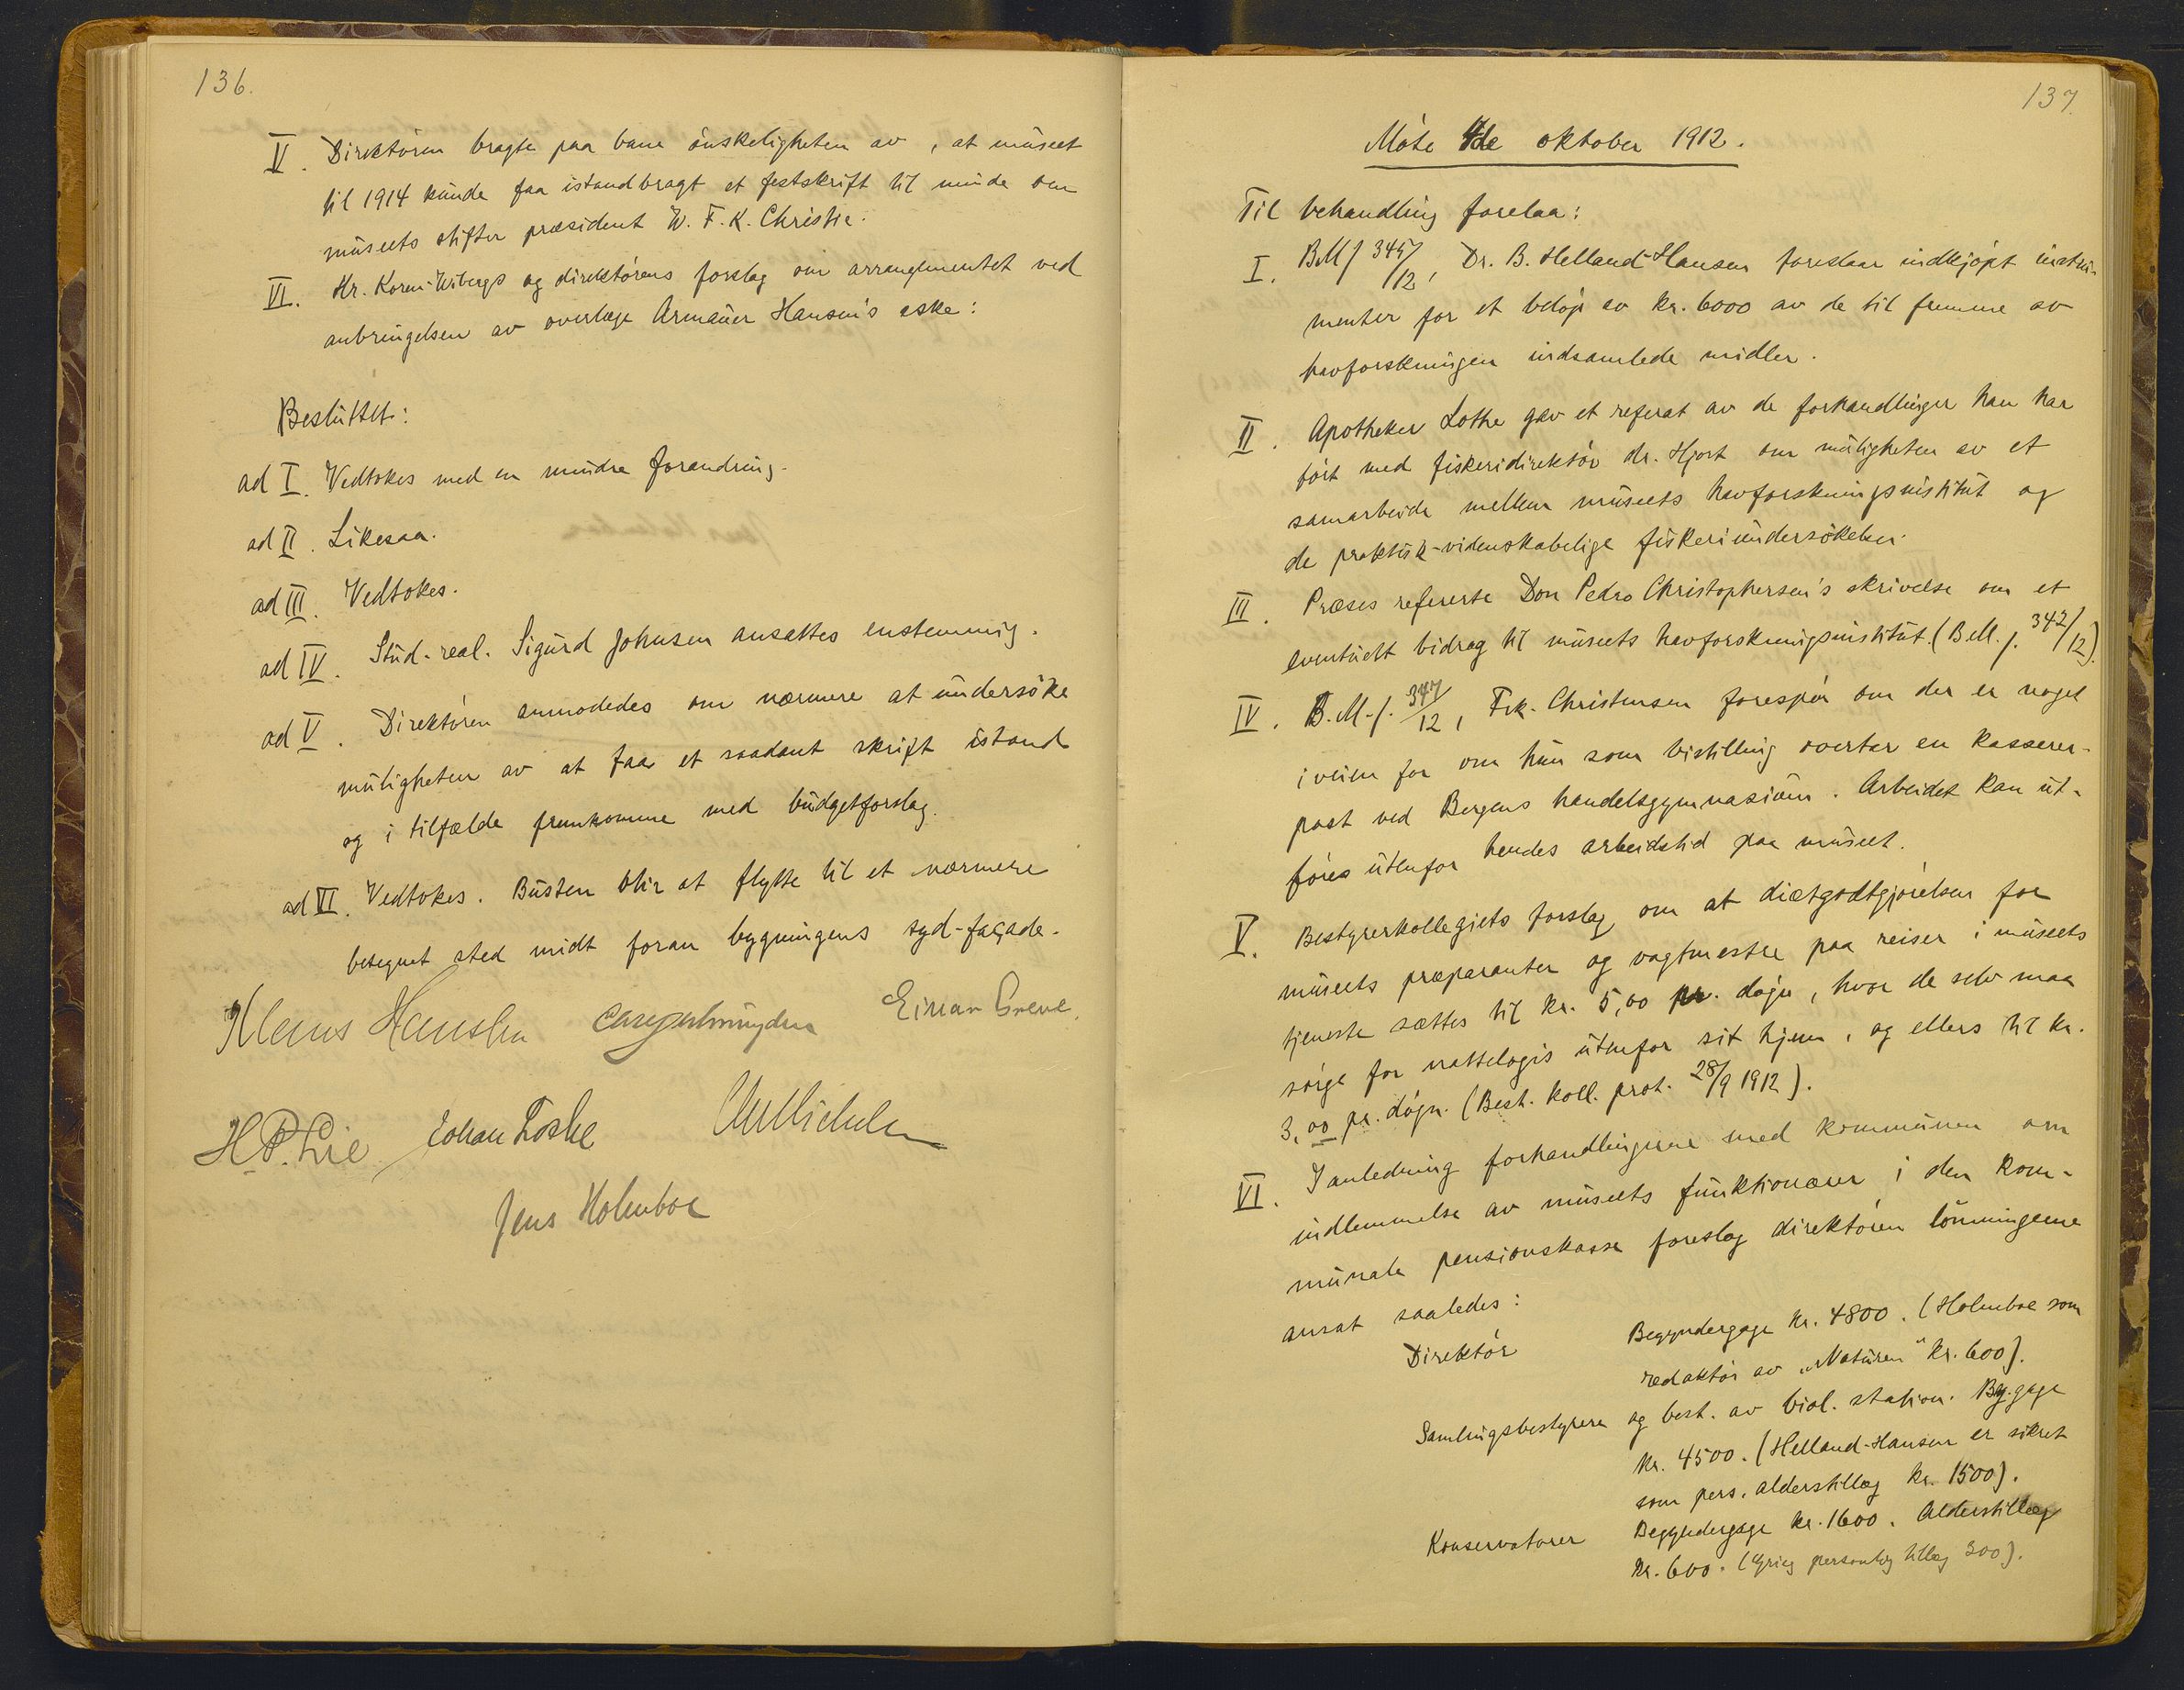 136.
V. Direktören bragte paa bane önskeligheten av, at museet
til 1914 kunde faa istandbragt et festskrift til minde om
museets stifter præsident W. F. K. Christie.
VI. Hr. Koren-Wibergs og direktörens forslag om arrangementet ved
anbringelsen av overlæge Armauer Hansen's aske:
Besluttet:
ad I. Vedtokes med en mindre forandring.
ad II. Likesaa.
ad III. Vedtokes.
ad IV. Stud. real. Sigurd Johnsen ansattes enstemmig.
ad V. Direktören anmodedes om nærmere at undersöke
muligheten av at faa et saadant skrift istand
og i tilfælde fremkomme med budgetforslag.
ad VI. Vedtokes. Büsten blir at flytte til et nærmere
betegnet sted midt foran bygningens syd-façade.
Klaus Hanssen Einar Greve.
H. P. Lie Johan Lothe Chr Michelsen
Jens Holmboe
137.
Möte 4de oktober 1912.
Til behandling forelaa:
I. BM J 345/12, Dr. B. Helland-Hansen foreslaar indkjöpt instru-
menter for et belöp av kr. 6000 av de til fremme av
havforskningen indsamlede midler.
II. Apotheker Lothe gav et referat av de forhandlinger han har
fört med fiskeridirektör dr. Hjort om muligheten av et
samarbeide mellem museets havforskningsinstitut og
de praktisk-videnskabelige fiskeriundersökelser.
III. Præses refererte Don Pedro Christophersen's skrivelse om et
eventuelt bidrag til museets havforskningsinstitut. (B.M. J. 342/12).
IV. B.M.J. 347/12, Frk. Christensen forespör om der er noget
iveien for om hun som bistilling overtar en kasserer-
post ved Bergens handelsgymnasium. Arbeidet kan ut-
föres utenfor hendes arbeidstid paa museet.
V. Bestyrerkollegiets forslag om at diætgodtgjörelsen for
museets præparanter og vagtmestre paa reiser i museets
tjeneste sættes til kr. 5,00 pr. dögn, hvor de selv maa
sörge for nattelogis utenfor sit hjem, og ellers til kr.
3,00 pr. dögn. (Best. koll. prot. 28/9 1912).
VI. I anledning forhandlingerne med kommunen om
indlemmelse av museets funktionærer i den kom-
munale pensionskasse foreslog direktören lönningerne
ansat saaledes:
Direktör Begyndergage kr. 4800. (Holmboe som
redaktör av "Naturen" kr. 600).
Samlingsbestyrere og best. av biol. station. Beg.gage
kr. 4500. (Helland-Hansen er sikret
som pers. alderstillæg kr. 1500).
Konservatorer Begyndergage kr. 1600. Alderstillæg
kr. 600. (Grieg personlig tillæg 300).